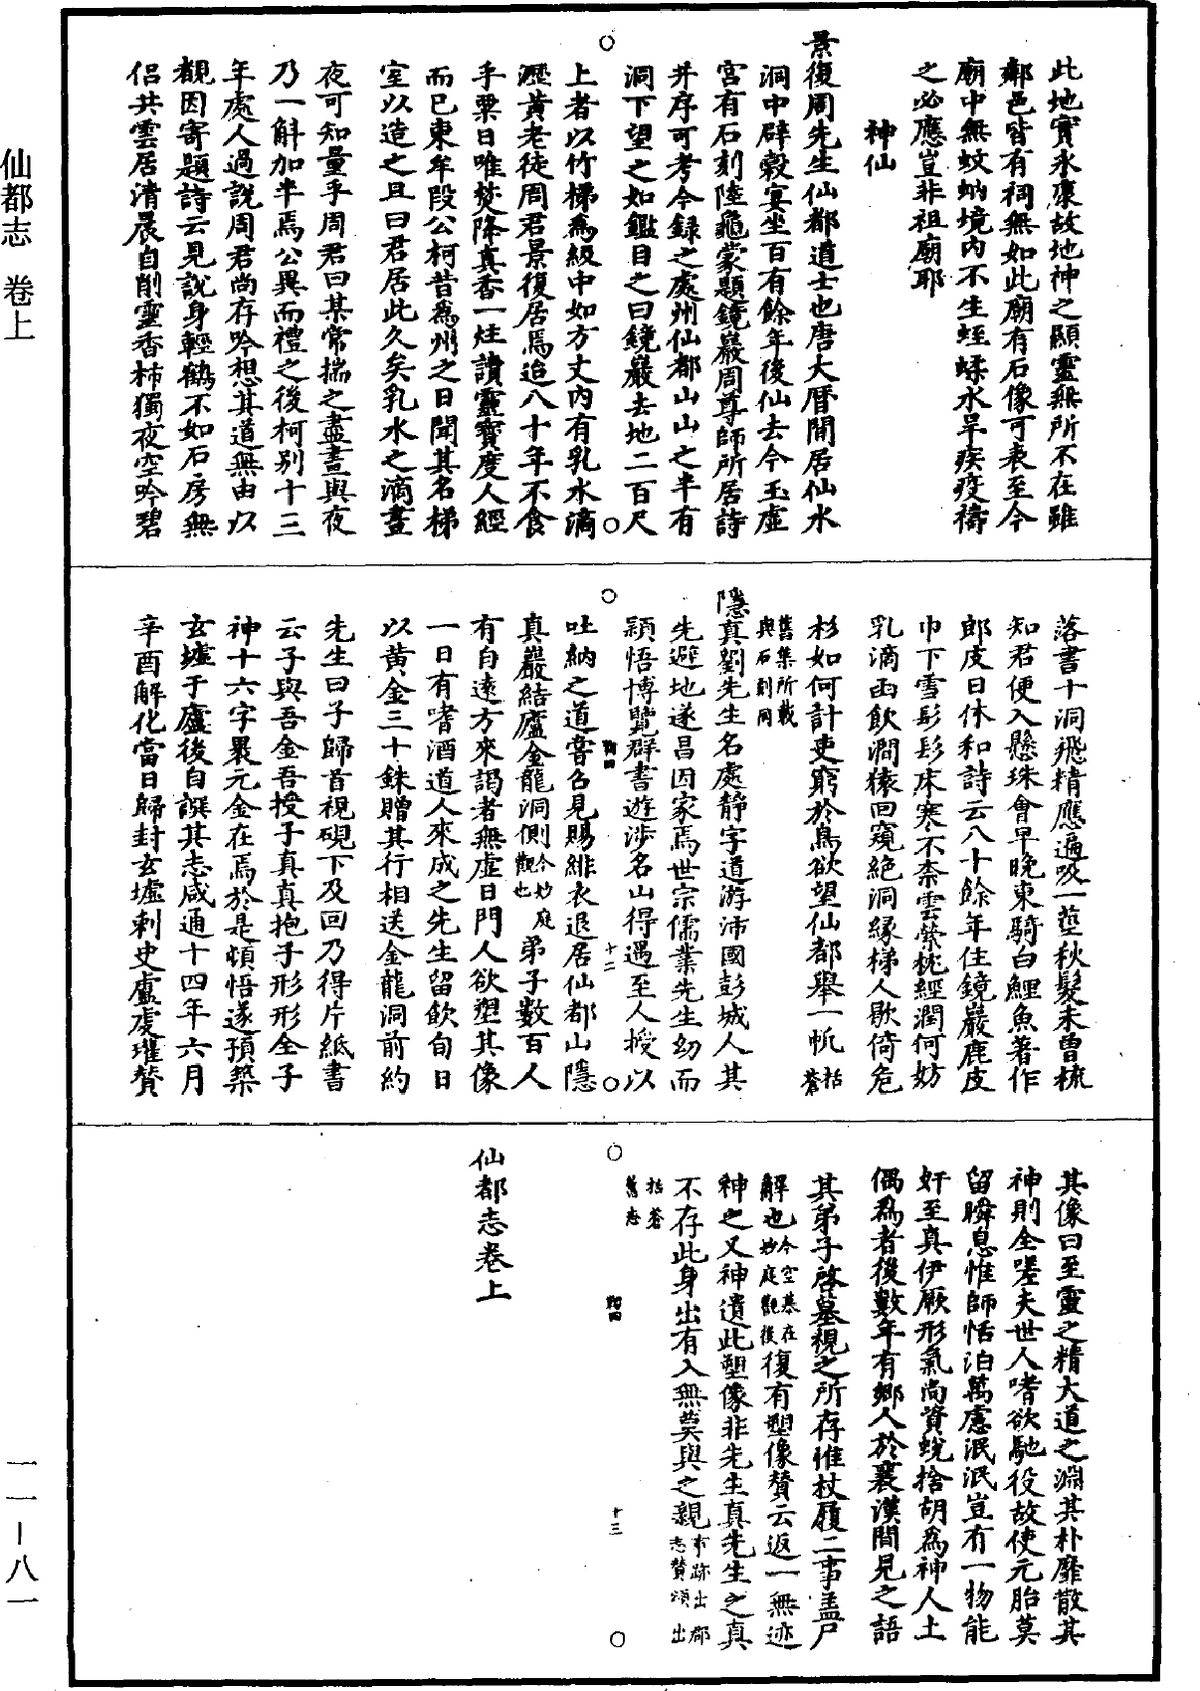 仙都志　卷上
此地實永康故地神之顯靈無所不在雖
鄰邑皆有祠無如此廟有石像可表至今
廟中無蚊蚋境內不生蛭蝚水旱疾疫禱
之必應豈非祖廟耶
神仙
景復周先生仙都道士也唐大曆間居仙水
洞中辟穀宴坐百有餘年後仙去今玉虛
宮有石刻陸龜蒙題鏡巖周尊師所居詩
并序可考今録之處州仙都山山之半有
洞下望之如鑑目之曰鏡巖去地二百尺
上者以竹梯爲級中如方丈內有乳水滴
瀝黃老徒周君景復居焉迨八十年不食
乎粟日唯焚降真香一炷讀靈寶度人經
而已東牟段公柯昔爲州之日聞其名梯
室以造之且曰君居此久矣乳水之滴晝
夜可知量乎周君曰某常揣之盡晝與夜
乃一斛加半焉公異而禮之後柯别十三
年處人過說周君尚存吟想其道無由以
覩因寄題詩云見說身輕鶴不如石房無
侶共雲居清晨自削靈香柿獨夜空吟碧
落書十洞飛精應遍吸一莖秋髮未曾梳
知君便入懸珠會早晚東騎白鯉魚著作
郎皮日休和詩云八十餘年住鏡巖鹿皮
巾下雪髟髟床寒不柰雲縈枕經潤何妨
乳滴函飲澗猿回窺絕洞緣梯人歇倚危
杉如何計吏窮於鳥欲望仙都舉一帆括蒼
舊集所載
與石刻同
隱真劉先生名處靜字道游沛國彭城人其
先避地遂昌因家焉世宗儒業先生幼而
穎悟博覽群書遊涉名山得遇至人授以
鞠四
十二
吐納之道嘗召見賜緋衣退居仙都山隱
真巖結廬金龍洞側今妙庭觀也弟子數百人
有自遠方來謁者無虛日門人欲塑其像
一日有嗜酒道人來成之先生留飲旬日
以黃金三十銖贈其行相送金龍洞前約
先生曰子歸首視硯下及回乃得片紙書
云子與吾金吾授子真真抱子形形全子
神十六字裹元金在焉於是頓悟遂預築
玄墟于廬後自譔其志咸通十四年六月
辛酉解化當日歸封玄墟刺史盧虔瓘贊
其像曰至靈之精大道之淵其朴靡散其
神則全嗟夫世人嗜欲馳役故使元胎莫
留瞬息惟師恬泊萬慮泯泯豈有一物能
奸至真伊厥形氣尚資蛻捨胡爲神人土
偶爲者後數年有鄉人於襄漢間見之語
其弟子啓墓視之所存惟杖屨二事盖尸
解也今空墓在妙庭觀後復有塑像贊云返一無迹
神之又神遺此塑像非先生真先生之真
不存此身出有入無莫與之親事跡出郡志贊頌出
括蒼
舊志
鞠四
十三
仙都志卷上
一一－八一